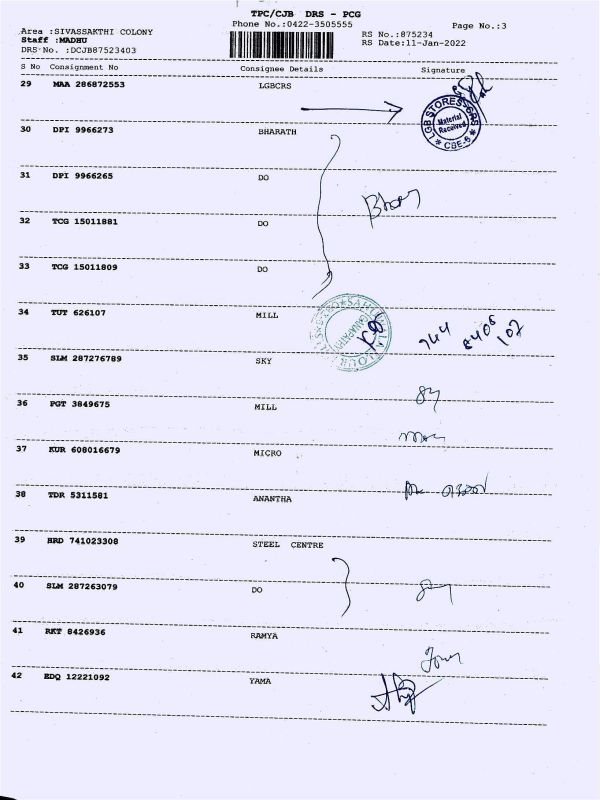 TPC/CJB DRS - PCG
Phone No.:0422-3505555
Page No.:3
Area :SIVASSAKTHI COLONY
Staff :MADHU
DRS No. :DCJB87523403
RS No.:875234
RS Date:11-Jan-2022
S No Consignment No Consignee Details Signature
29 MAA 286872553 LGBCRS
LGB STORES CRS
Material Received
CBE-6
30 DPI 9966273 BHARATH
31 DPI 9966265 DO
32 TCG 15011881 DO
33 TCG 15011809 DO
34 TUT 626107 MILL
944 8408 102
35 SLM 287276789 SKY
36 PGT 3849675 MILL
37 KUR 608016679 MICRO
38 TDR 5311581 ANANTHA
39 BRD 741023308 STEEL CENTRE
40 SLM 287263079 DO
41 RKT 8426936 RAMYA
42 EDQ 12221092 YAMA